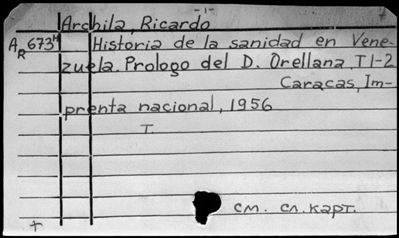 -1-
Archila, Ricardo
AR 673H Historia de la sanidad en Vene-
zuela. Prologo del D. Orellana T1-2
Caracas, Im-
prenta nacional, 1956
T.
см. сл. карт.
+